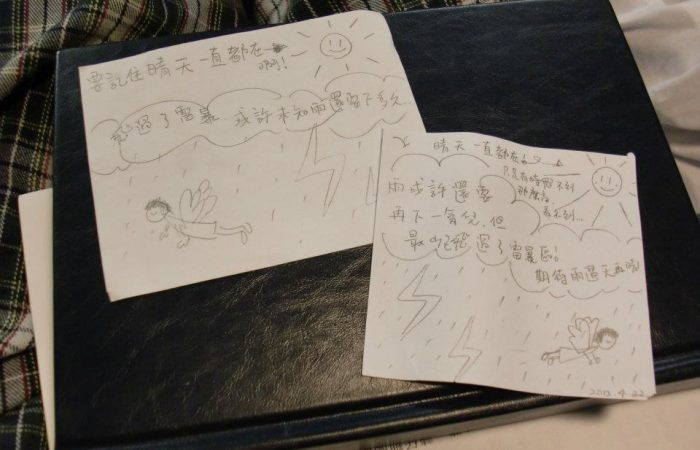 要記住晴天一直都在
啊!
飛過了雷暴 或許未知雨還會下多久...
晴天一直都在
只是有時照不到
那麼
看不到...
雨或許還要
再下一會兒,但
最 飛過了雷暴區!
期待雨過天
2013.4.22